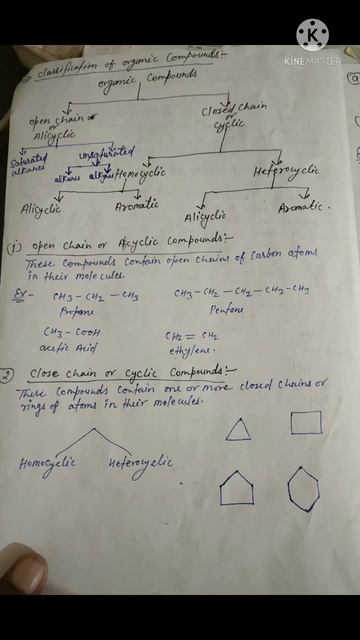 KINEMASTER
Classification of organic Compounds:-
organic Compounds
open chain or
or
Alicyclic
Closed chain
or
cyclic
Saturated
alkanes
unsaturated
alkenes alkynes
Homocyclic
Heterocyclic
Alicyclic
Aromatic
Alicyclic
Aromatic.
(1) open chain or Acyclic Compounds:-
These Compounds contain open chains of Carbon atoms
in their molecules.
Ex- CH3-CH2-CH3
Propane
CH3-CH2-CH2-CH2-CH3
Pentane
CH3-COOH
acetic Acid
CH2=CH2
ethylene.
2 Close chain or cyclic Compounds:-
These Compounds contain one or more closed chains or
rings of atoms in their molecules.
Homocyclic
Heterocyclic